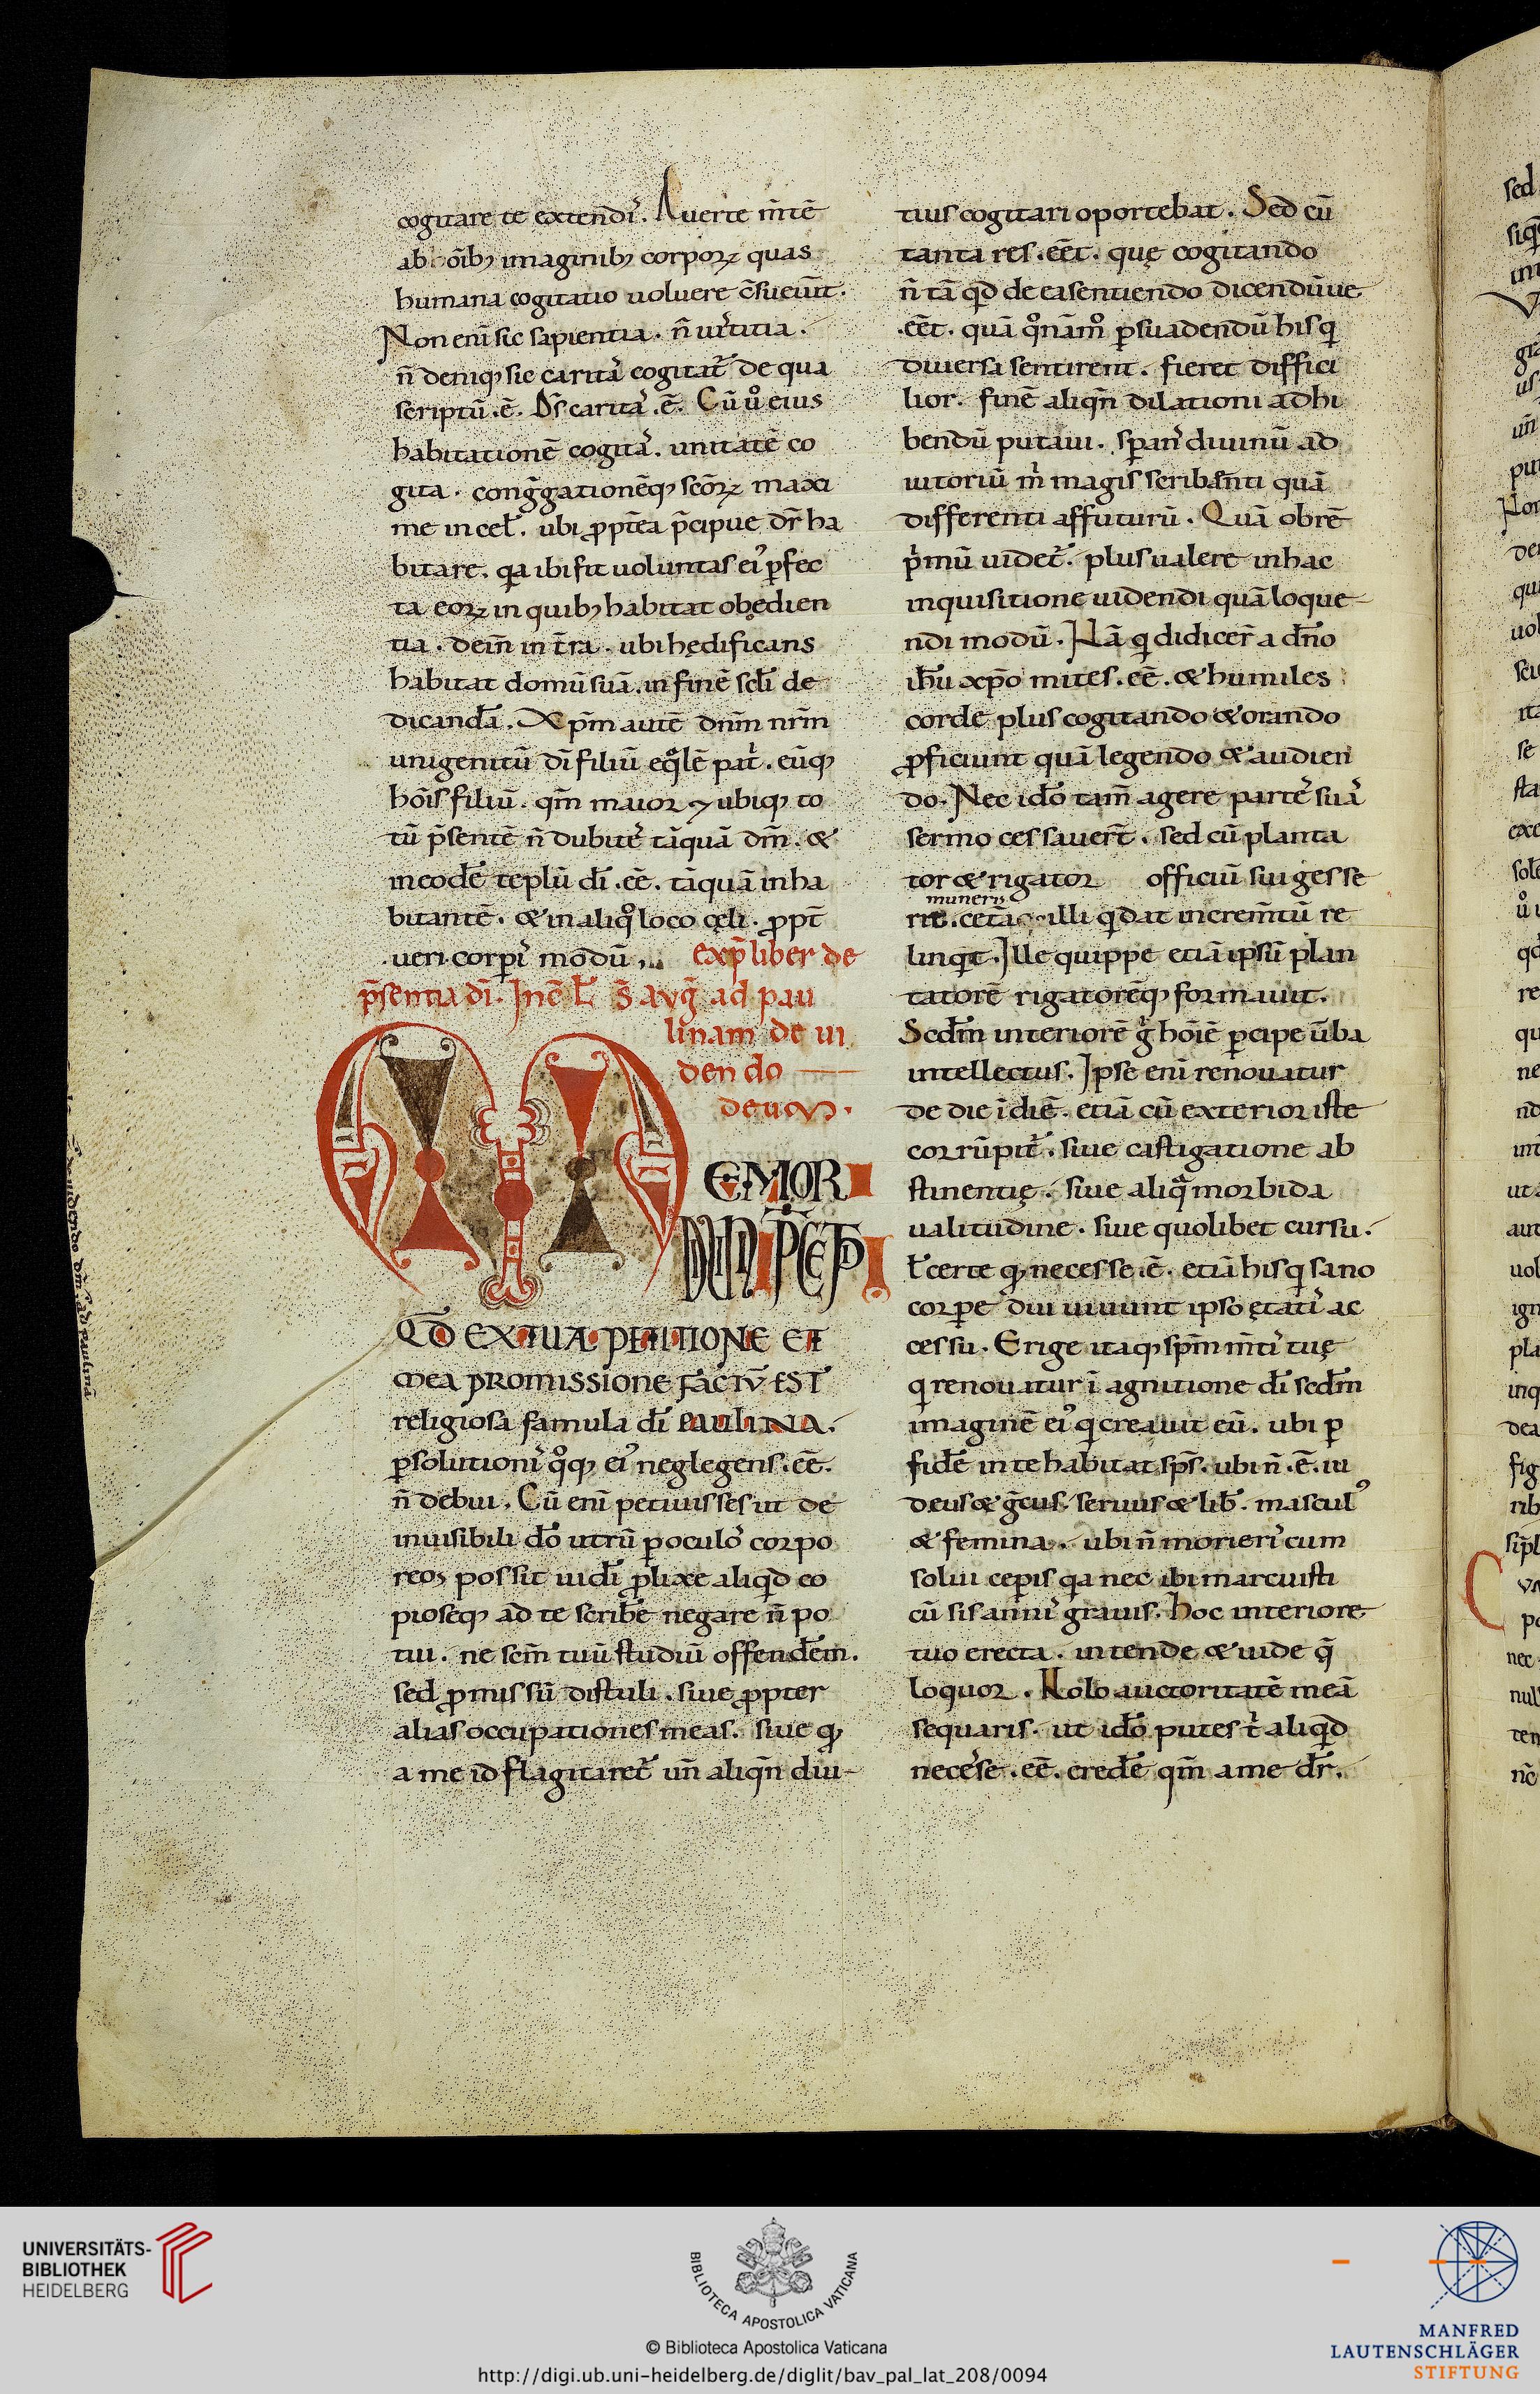 cogitare te extendı̾. Auerte m̄tē
ab oı̄b; imaginib; corpoꝝ quas
humana cogitatio uoluere c̄sueuīt.
Non enī sic sapientia. n̄ iu̾titia.
n̄ deniq; sic carita̾ cogitat̾ de qua
scriptū .ē. Ds̄ carita̾ .ē. Cū u̾o eius
habitationē cogita̾. unitatē co
gita. cong̾gationēq; sc̄oꝝ maxi
me in cel̾. ubi ꝓpt̄ea p̄cipue dr̄ ha
bitare. qa ibi fit uoluntas ei᾽ ꝑfec
ta eoꝝ in quib; habitat obędien
tia. dein̄ in t̄ra. ubi hędificans
habitat domū suā. in finē sc̄li de
dicandā. Xp̄m autē dn̄m nr̄m
unigenitū dī filiū eq̾lē pat̾. eūq;
hōis filiū. qm̄ maior ⁊ ubiq; to
tū p̄sentē n̄ dubite̾ tāquā dm̄. &
in eodē tēplū dī .eē. tāquā inha
bitantē. & in aliq̊ loco cęli. ꝓpt̄
ueri corpı̾ modū. exp̄ liber de
p̄sentia dī. Inc̄ L̄ S̄ avḡ ad pau
linam de ui
dendo
deum.
MEMOR
DEBITI
QD̄ EX TUA PETITIONE ET
MEA PROMISSIONE FACTŪ EST
religiosa famula dī PAULINA.
ꝑsolutionı̾ q̊q; ei᾽ neglegens .eē.
n̄ debui. Cū enī petiuisses ut de
inuisibili dō utrū ꝑ oculo̾ corpo
reos possit uidı̄ ꝓlixe aliqd̄ co
pioseq; ad te scribe̅ negare n̄ po
tui. ne sc̄m tuū studiū offenderm̄.
sed ꝓmissū distuli. siue ꝓpter
alias occupationes meas. siue q;
a me id flagitaret̾ un̄ aliqn̄ diu-
tius cogitari oportebat. Sed cū
tanta res .eēt. quę cogitando
n̄ tā qd̄ de ea sentiendo dicendūue
.eēt. quā q̊nām̊ ꝑsuadendū his q̄
diuersa sentirent. fieret diffici
lior. finē aliqn̄ dilationi adhi
bendū putaui. span̾ diuinū ad
iutoriū m̾ magis scribēnti quā
differenti affuturū. Quā obrē
p̾mū uidet̾. plus ualere in hac
inquisitione uidendi quā loque-
ndi modū. Nā qi didicer̄ a dn̄o
ih̄u xp̄o mites .eē. & humiles
corde plus cogitando & orando
ꝓficiunt quā legendo & audien
do. Nec idō tam̄ agere parte̾ sua̾
sermo cessauer̄t. sed cū planta
tor & rigator officiū sui gesse
muneris
rit. cetā illi qi dat increm̄tū re
linqt̄. Ille quippe etiā ipsū plan
tatorē rigatorēq; formauit.
Scdm̄ interiorē g̾ hōiē ꝑcipe ūba
intellectus. Ipse enī renouatur
de die ī diē. etiā cū exterior iste
corrūpit̾. siue castigatione ab
stinentię. siue aliq̄ morbida
ualitudine. siue quolibet cursu.
L̄ certe q; necesse .ē. etiā his qi sano
corꝑe diu uiuunt ipso ętatı̾ ac
cessu. Erige itaq; sp̄m m̄tı̾ tuę
qi renouatur ī agnitione dī scdm̄
imaginē ei᾽ qi creauit eū. ubi ꝑ
fidē in te habitat xp̄s. ubi n̄ .ē. iu
deus & g̾cus. seruus & lib̄. mascul᾽
& femina. ubi n̄ morierı̾ cum
solui ceperis qa nec ibi marcuisti
cū sis annı̾ grauis. Hoc interiore
tuo erecta. intende & uide q̄
loquor. Nolo auctoritatē meā
sequaris. ut idō putes t̾ aliqd̄
necesse .eē. credē qm̄ a me dr̄.
UNIVERSITÄTS-
BIBLIOTHEK
HEIDELBERG
BIBLIOTECA APOSTOLICA VATICANA
© Biblioteca Apostolica Vaticana
http://digi.ub.uni-heidelberg.de/diglit/bav_pal_lat_208/0094
MANFRED
LAUTENSCHLÄGER
STIFTUNG